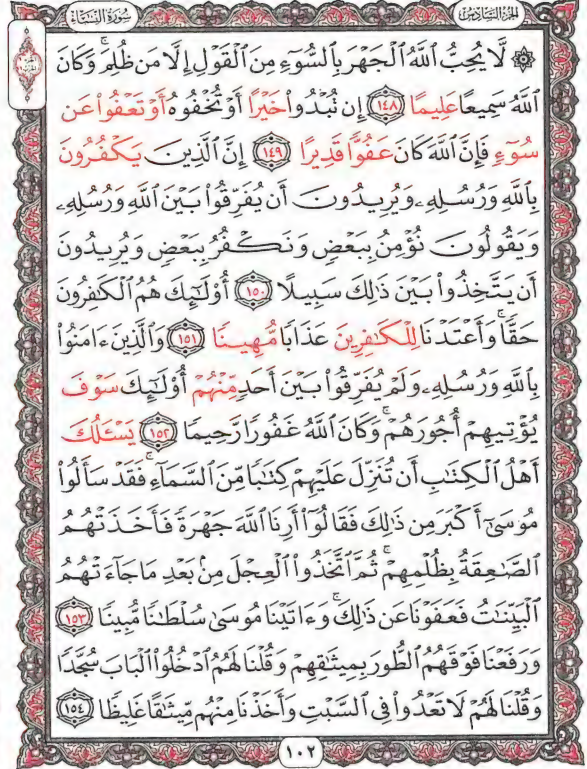 الجزء السادس سورة النساء
۞ لَّا يُحِبُّ ٱللَّهُ ٱلْجَهْرَ بِٱلسُّوٓءِ مِنَ ٱلْقَوْلِ إِلَّا مَن ظُلِمَ ۚ وَكَانَ
ٱللَّهُ سَمِيعًا عَلِيمًا ١٤٨ إِن تُبْدُوا۟ خَيْرًا أَوْ تُخْفُوهُ أَوْ تَعْفُوا۟ عَن
سُوٓءٍ فَإِنَّ ٱللَّهَ كَانَ عَفُوًّا قَدِيرًا ١٤٩ إِنَّ ٱلَّذِينَ يَكْفُرُونَ
بِٱللَّهِ وَرُسُلِهِۦ وَيُرِيدُونَ أَن يُفَرِّقُوا۟ بَيْنَ ٱللَّهِ وَرُسُلِهِۦ
وَيَقُولُونَ نُؤْمِنُ بِبَعْضٍ وَنَكْفُرُ بِبَعْضٍ وَيُرِيدُونَ
أَن يَتَّخِذُوا۟ بَيْنَ ذَٰلِكَ سَبِيلًا ١٥٠ أُو۟لَـٰٓئِكَ هُمُ ٱلْكَـٰفِرُونَ
حَقًّا ۚ وَأَعْتَدْنَا لِلْكَـٰفِرِينَ عَذَابًا مُّهِينًا ١٥١ وَٱلَّذِينَ ءَامَنُوا۟
بِٱللَّهِ وَرُسُلِهِۦ وَلَمْ يُفَرِّقُوا۟ بَيْنَ أَحَدٍ مِّنْهُمْ أُو۟لَـٰٓئِكَ سَوْفَ
يُؤْتِيهِمْ أُجُورَهُمْ ۗ وَكَانَ ٱللَّهُ غَفُورًا رَّحِيمًا ١٥٢ يَسْـَٔلُكَ
أَهْلُ ٱلْكِتَـٰبِ أَن تُنَزِّلَ عَلَيْهِمْ كِتَـٰبًا مِّنَ ٱلسَّمَآءِ ۚ فَقَدْ سَأَلُوا۟
مُوسَىٰٓ أَكْبَرَ مِن ذَٰلِكَ فَقَالُوٓا۟ أَرِنَا ٱللَّهَ جَهْرَةً فَأَخَذَتْهُمُ
ٱلصَّـٰعِقَةُ بِظُلْمِهِمْ ۚ ثُمَّ ٱتَّخَذُوا۟ ٱلْعِجْلَ مِنۢ بَعْدِ مَا جَآءَتْهُمُ
ٱلْبَيِّنَـٰتُ فَعَفَوْنَا عَن ذَٰلِكَ ۚ وَءَاتَيْنَا مُوسَىٰ سُلْطَـٰنًا مُّبِينًا ١٥٣
وَرَفَعْنَا فَوْقَهُمُ ٱلطُّورَ بِمِيثَـٰقِهِمْ وَقُلْنَا لَهُمُ ٱدْخُلُوا۟ ٱلْبَابَ سُجَّدًا
وَقُلْنَا لَهُمْ لَا تَعْدُوا۟ فِى ٱلسَّبْتِ وَأَخَذْنَا مِنْهُم مِّيثَـٰقًا غَلِيظًا ١٥٤
١٠٢